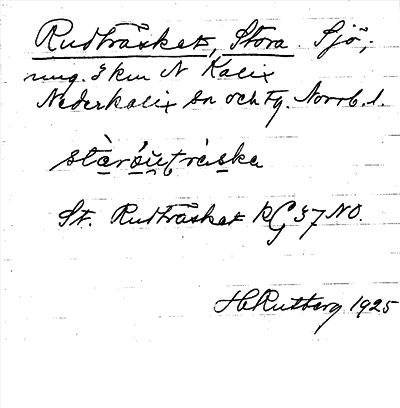 Rudträsket, Stora. Sjö,
ung. 3 km N Kalix
Nederkalix sn och Fg. Norrb. l.
St. Rudträsket RG 37 NO.
H Rutberg 1925